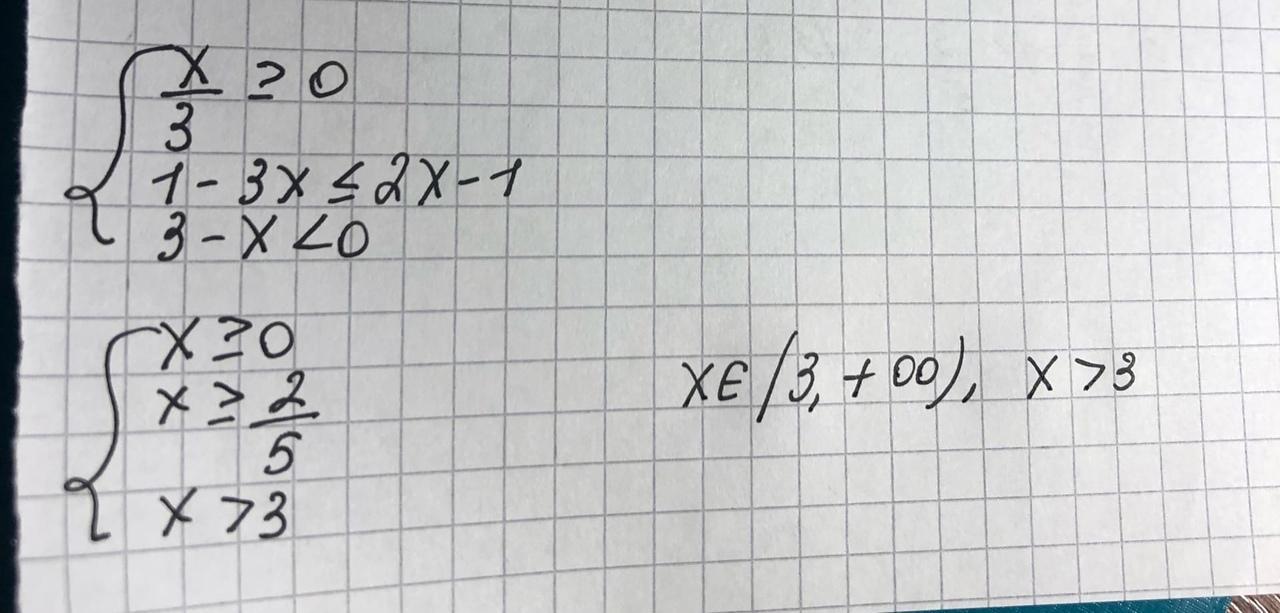 x/3 ≥ 0
1 - 3x ≤ 2x - 1
3 - x < 0
x ≥ 0
x ≥ 2/5
x > 3
x ∈ (3, +∞), x > 3